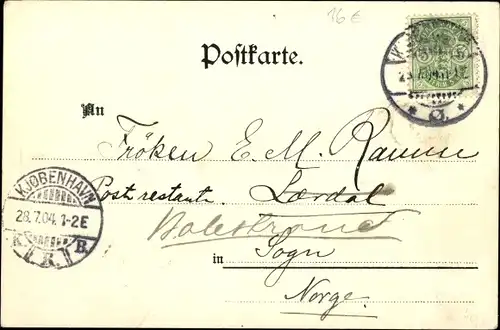 16 €
Postkarte.
KJØBENHAVN
Ø.
An
Fröken E. M. Ramm
Post restante. Lærdal
KJØBENHAVN
28.7.04. 1-2 E
K. R. B.
Balestrand
in Sogn
Norge.